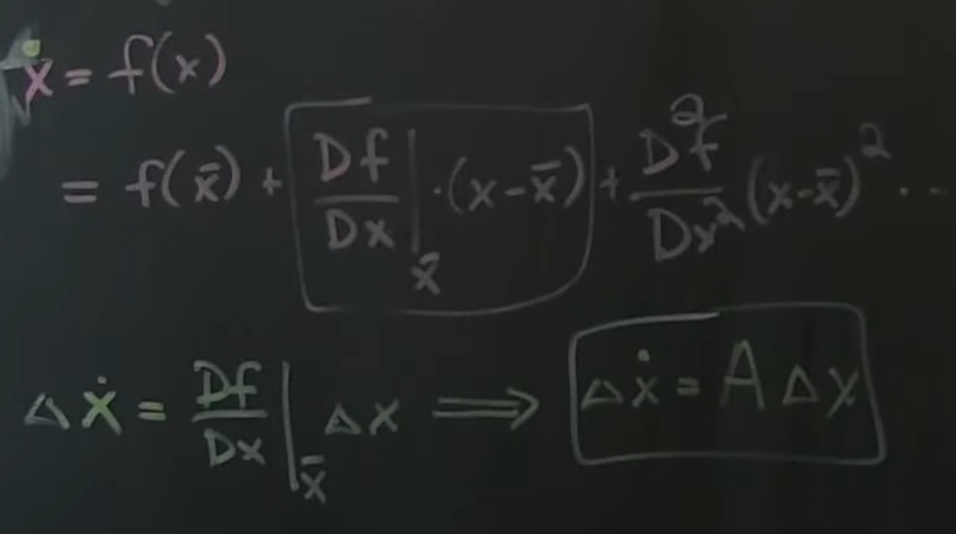 ẋ = f(x)
= f(x̄) + Df/Dx|x̄ · (x-x̄) + D²f/Dx² (x-x̄)² ...
Δẋ = Df/Dx|x̄ Δx ⟹ Δẋ = A Δx